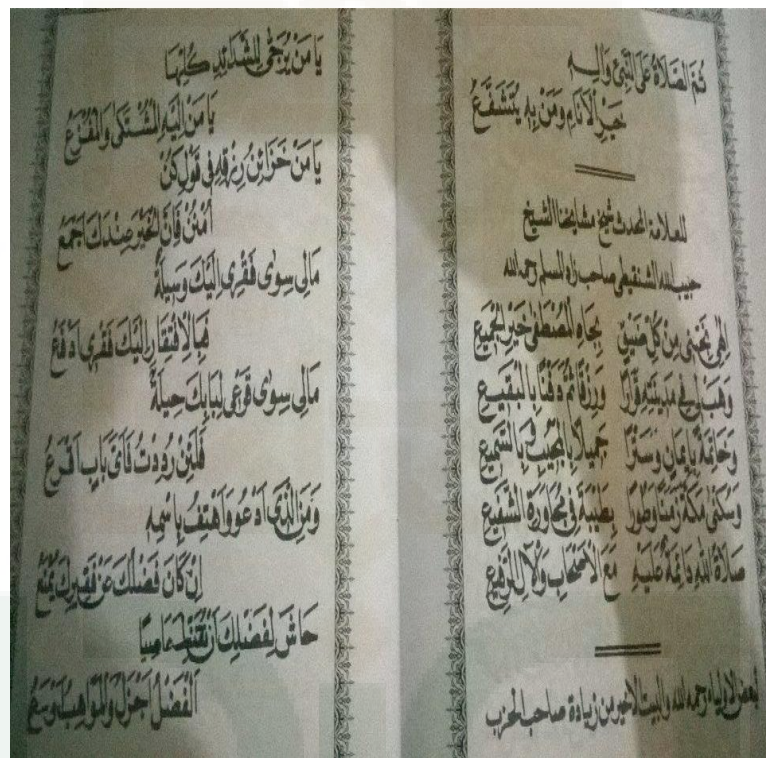 ثُمَّ الصَّلَاةُ عَلَى النَّبِيِّ وَآلِهِ
خَيْرِ الْأَنَامِ وَمَنْ بِهِ يُتَشَفَّعُ
للعلامة المحدث شيخ مشايخنا الشيخ
حبيب الله الشنقيطى صاحب زاد المسلم رحمه الله
إِلٰهِى نَجِّنِى مِنْ كُلِّ ضَيْقٍ بِجَاهِ الْمُصْطَفٰى خَيْرِ الْجَمِيعِ
وَهَبْ لِى فِى مَدِينَتِهِ قَرَارًا وَرِزْقًا ثُمَّ دَفْنًا بِالْبَقِيعِ
وَخَاتِمَةً بِإِيمَانٍ وَسَتْرًا جَمِيلًا بِالْمُجِيبِ بِالسَّمِيعِ
وَسُكْنٰى مَكَّةَ زَمَنًا وَطَوْرًا بِطَيْبَةَ فِى مُجَاوَرَةِ الشَّفِيعِ
صَلَاةُ اللهِ دَائِمَةً عَلَيْهِ مَعَ الْأَصْحَابِ وَالْآلِ الرَّفِيعِ
لبعض الاولياء رحمه الله والبيت الاخير من زيادة صاحب الحزب
يَا مَنْ يُرَجّٰى لِلشَّدَائِدِ كُلِّهَا
يَا مَنْ إِلَيْهِ الْمُشْتَكٰى وَالْمَفْزَعُ
يَا مَنْ خَزَائِنُ رِزْقِهِ فِى قَوْلِ كُنْ
اُمْنُنْ فَإِنَّ الْخَيْرَ عِنْدَكَ اَجْمَعُ
مَالِى سِوٰى فَقْرِى اِلَيْكَ وَسِيلَةٌ
فَبِالْاِفْتِقَارِ اِلَيْكَ فَقْرِى اَدْفَعُ
مَالِى سِوٰى قَرْعِى لِبَابِكَ حِيلَةٌ
فَلَئِنْ رُدِدْتُ فَاَىَّ بَابٍ اَقْرَعُ
وَمَنِ الَّذِى اَدْعُو وَاَهْتِفُ بِاسْمِهِ
اِنْ كَانَ فَضْلُكَ عَنْ فَقِيرِكَ يُمْنَعُ
حَاشَ لِفَضْلِكَ اَنْ تُقَنِّطَ عَاصِيًا
اَلْفَضْلُ اَجْزَلُ وَالْمَوَاهِبُ اَوْسَعُ